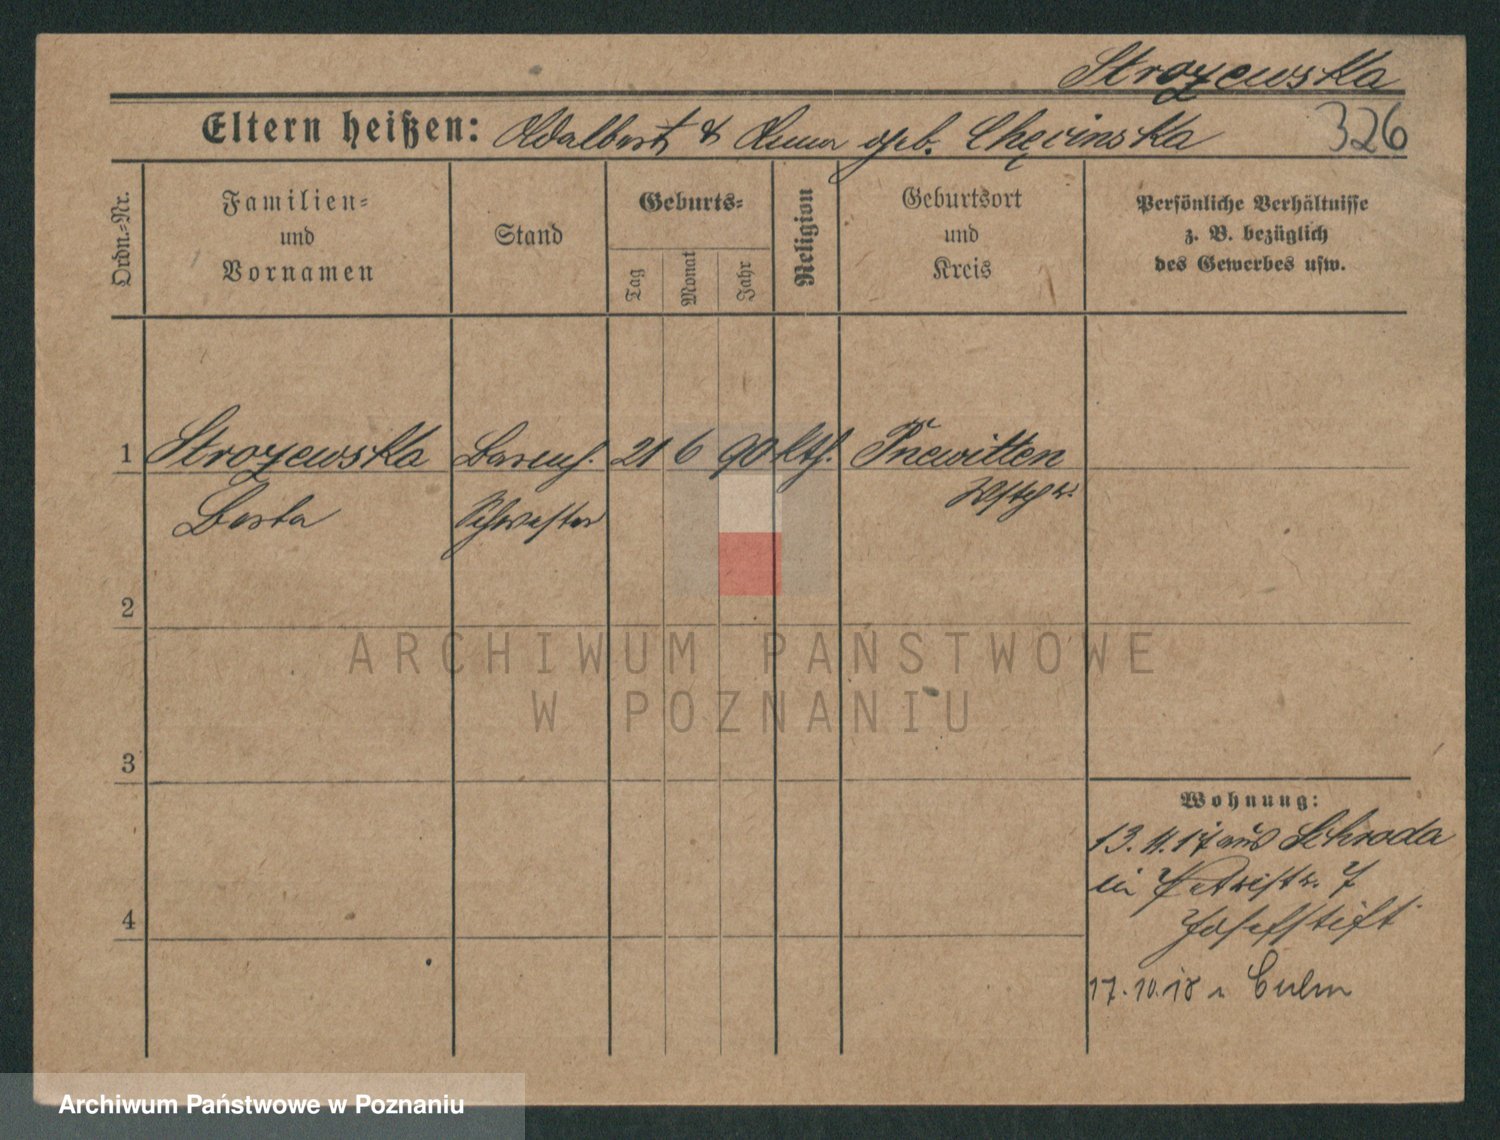 Strożewska
Eltern heißen: Adalbert & Anna geb. Chęcinska 326
Ordn.-Nr.
Familien-
und
Vornamen
Stand
Geburts-
Tag
Monat
Jahr
Religion
Geburtsort
und
Kreis
Persönliche Verhältnisse
z. B. bezüglich
des Gewerbes usw.
1 Strożewska Barmh. 21 6 90 kth. Pnewitten
Berta Schwester Wstpr.
2
3
4
Wohnung:
13.11.17 aus Schroda
in Petristr. 7
Josefstift
17.10.18 n Culm
ARCHIWUM PAŃSTWOWE
W POZNANIU
Archiwum Państwowe w Poznaniu